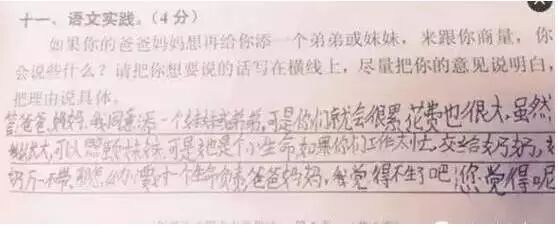 十一、语文实践。(4分)
如果你的爸爸妈妈想再给你添一个弟弟或妹妹，来跟你商量，你
会说些什么？请把你想要说的话写在横线上，尽量把你的意见说明白，
把理由说具体。
答爸爸，妈妈，我同意添一个妹妹或弟弟，可是你们就会很累，花费也很大，虽然
大，可以照顾妹妹，可是她是个小生命，如果你们工作太忙，交给奶奶，
奶万一不带，要对一个生命负责，爸爸妈妈，我觉得不生了吧，您觉得呢